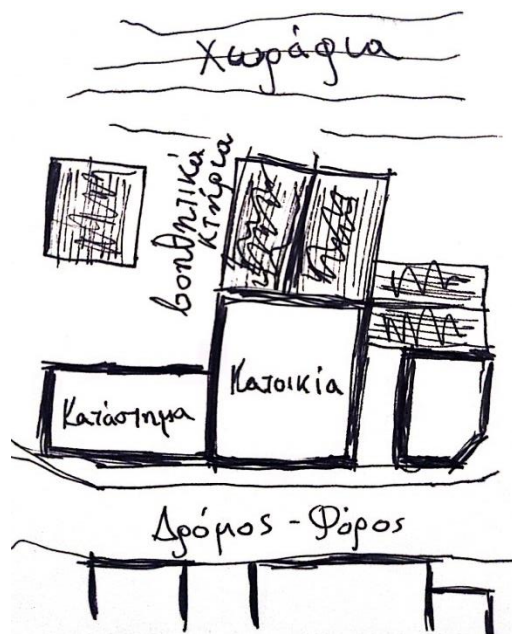 Χωράφια
βοηθητικά
κτήρια
Κατοικία
Κατάστημα
Δρόμος - Φόρος